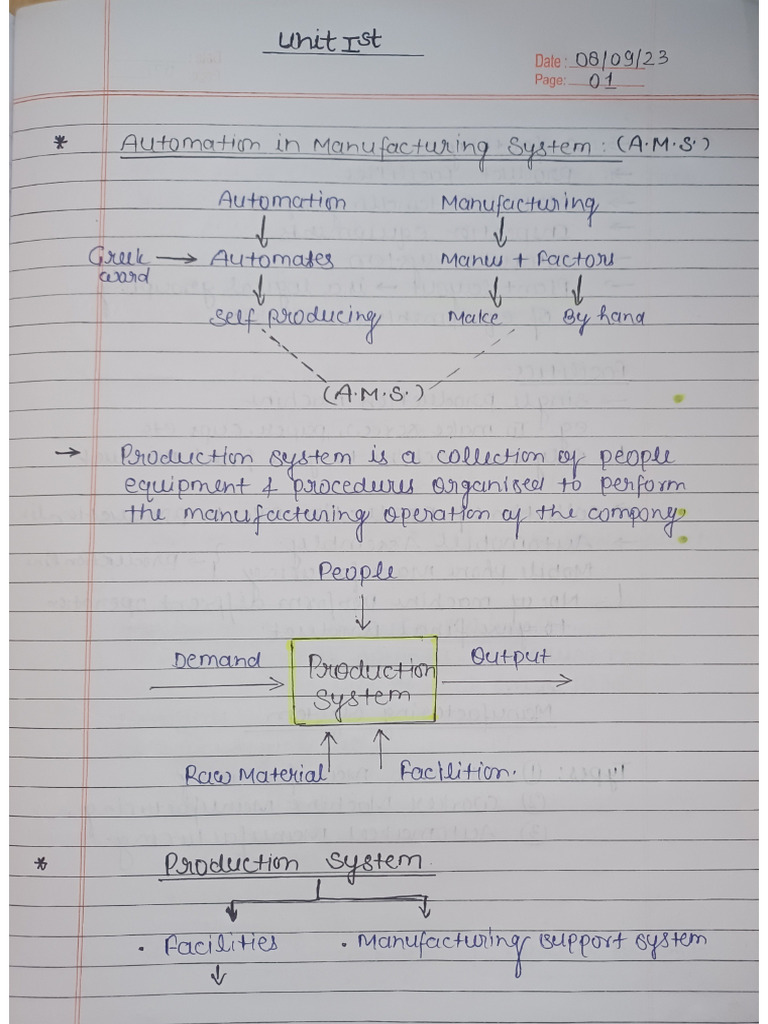 Unit Ist
Date: 08/09/23
Page: 01
* Automation in Manufacturing System: (A.M.S.)
Automation Manufacturing
Greek word → Automates Manu + Factors
Self producing Make By hand
(A.M.S.)
→ Production system is a collection of people
equipment & procedures organised to perform
the manufacturing operation of the company
People
Demand Production Output
System
Raw Material Facilition.
* Production system.
· Facilities · Manufacturing support system